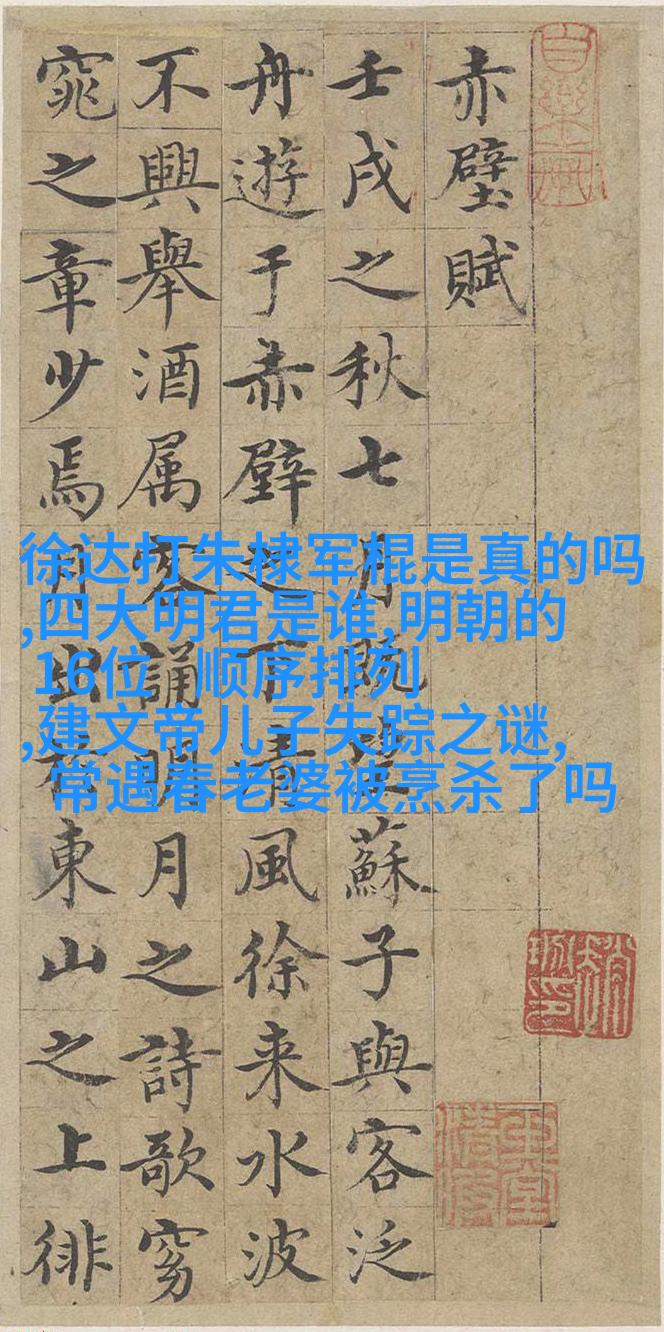 赤壁賦
壬戌之秋七月既望蘇子與客泛
舟遊于赤壁之下清風徐来水波
不興舉酒属客誦明月之詩歌窈
窕之章少焉月出於東山之上徘
徐达打朱棣军棍是真的吗
,四大明君是谁,明朝的
16位 顺序排列
,建文帝儿子失踪之谜,
常遇春老婆被烹杀了吗